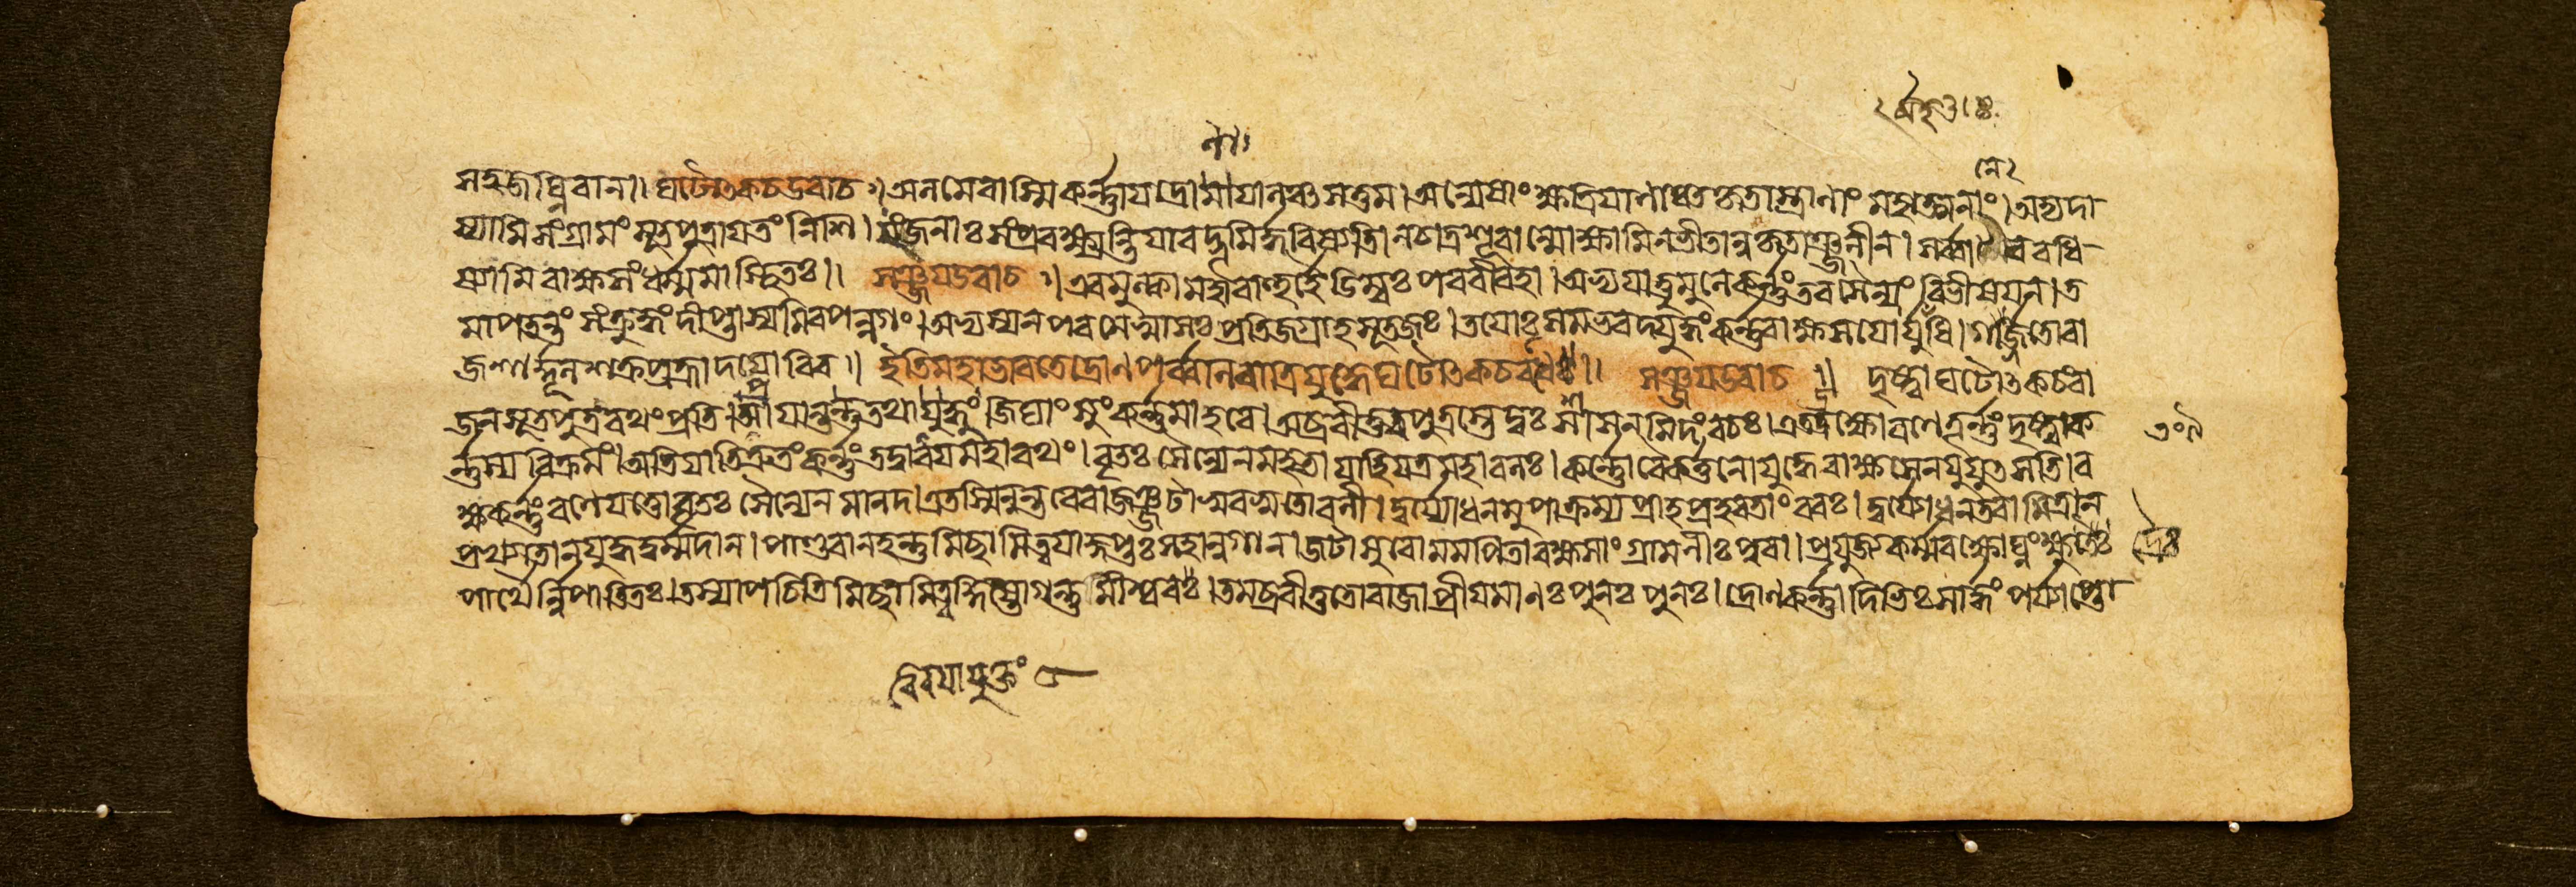 সহজঘ্নিবান।। ঘটোৎকচউবাচ।। অলমেবাস্মিকর্ণ্ণাযদ্রোণাযালঞ্চসত্তম। অন্যেষাং ক্ষত্রিযাণাঞ্চকৃতাস্ত্রাণাং মহাত্মনাং। অদ্যদা
স্যামিসংগ্রামং সূতপুত্রাযতং নিশি। যংজনাঃ সংপ্রবক্ষ্যন্তিযাবদ্ভূমির্দ্ধরিষ্যতি। নচাত্রশূরান্মোক্ষ্যামিনভীতান্নকৃতাঞ্জলীন। সর্ব্বানেববধি
ষ্যামিরাক্ষসংধর্ম্মমাস্থিতঃ।। সঞ্জযউবাচ।। এবমুক্ত্বামহাবাহুর্হৈডিম্বঃ পরবীরহা। অভ্যযাত্তুমুলেকর্ণ্ণংতবসৈন্যং বিভীষযন। ত
মাপতন্তং সংক্রুদ্ধংদীপ্তাস্যমিবপন্নগং। অভ্যস্যনপরমেষ্বাসঃ প্রতিজগ্রাহসূতজঃ। তযোঃসমভবদ্যুদ্ধংকর্ণ্ণরাক্ষসযোর্যুধি। গর্জ্জতোরা
জশার্দ্দূলশক্রপ্রহ্লাদযোরিব।। ইতিমহাভারতেদ্রোণপর্ব্বণিরাত্রিযুদ্ধেঘটোৎকচবধঃ।। সঞ্জযউবাচ।। দৃষ্ট্বাঘটোৎকচংরা
জনসূতপুত্ররথংপ্রতি। আযান্তন্তুতথাযুক্তং জিঘাংসুংকর্ণ্ণমাহবে। অব্রবীত্তবপুত্রস্তুদুঃশাসনমিদংবচঃ। এতদ্রক্ষোরণেতূর্ণ্ণংদৃষ্ট্বাক
র্ণ্ণস্যবিক্রমং। অভিযাতিদ্রুতংকর্ণ্ণং তদ্বারযমহারথং। বৃতঃ সৈন্যেনমহতাযাহিযত্রমহাবলঃ। কর্ণ্ণোবৈকর্ত্তনোযুদ্ধেরাক্ষসেনযুযুৎসতি। র
ক্ষকর্ণ্ণংরণেযত্তোবৃতঃ সৈন্যেনমানদ। এতস্মিন্নন্তরেরাজঞ্জটাসুরসুতোবলী। দুর্য্যোধনমুপাক্রম্যপ্রাহপ্রহরতাংবরঃ। দুর্য্যোধনতবামিত্রান
প্রখ্যাতানযুদ্ধদুর্ম্মদান। পাণ্ডবানহন্তুমিচ্ছামিত্বযাজ্ঞপ্তঃসহানুগান। জটাসুরোমমপিতারক্ষসাংগ্রামণীঃপুরা। প্রযুজ্যকর্ম্মরক্ষোঘ্নংক্ষুদ্রৈঃ
পার্থৈর্ন্নিপাতিতঃ। তস্যাপচিতিমিচ্ছামিত্বদ্দিষ্টোগন্তুমীশ্বরঃ। তমব্রবীত্ততোরাজাপ্রীযমাণঃপুনঃপুনঃ। দ্রোণকর্ণ্ণাদিভিঃসার্দ্ধংপর্যাপ্তো